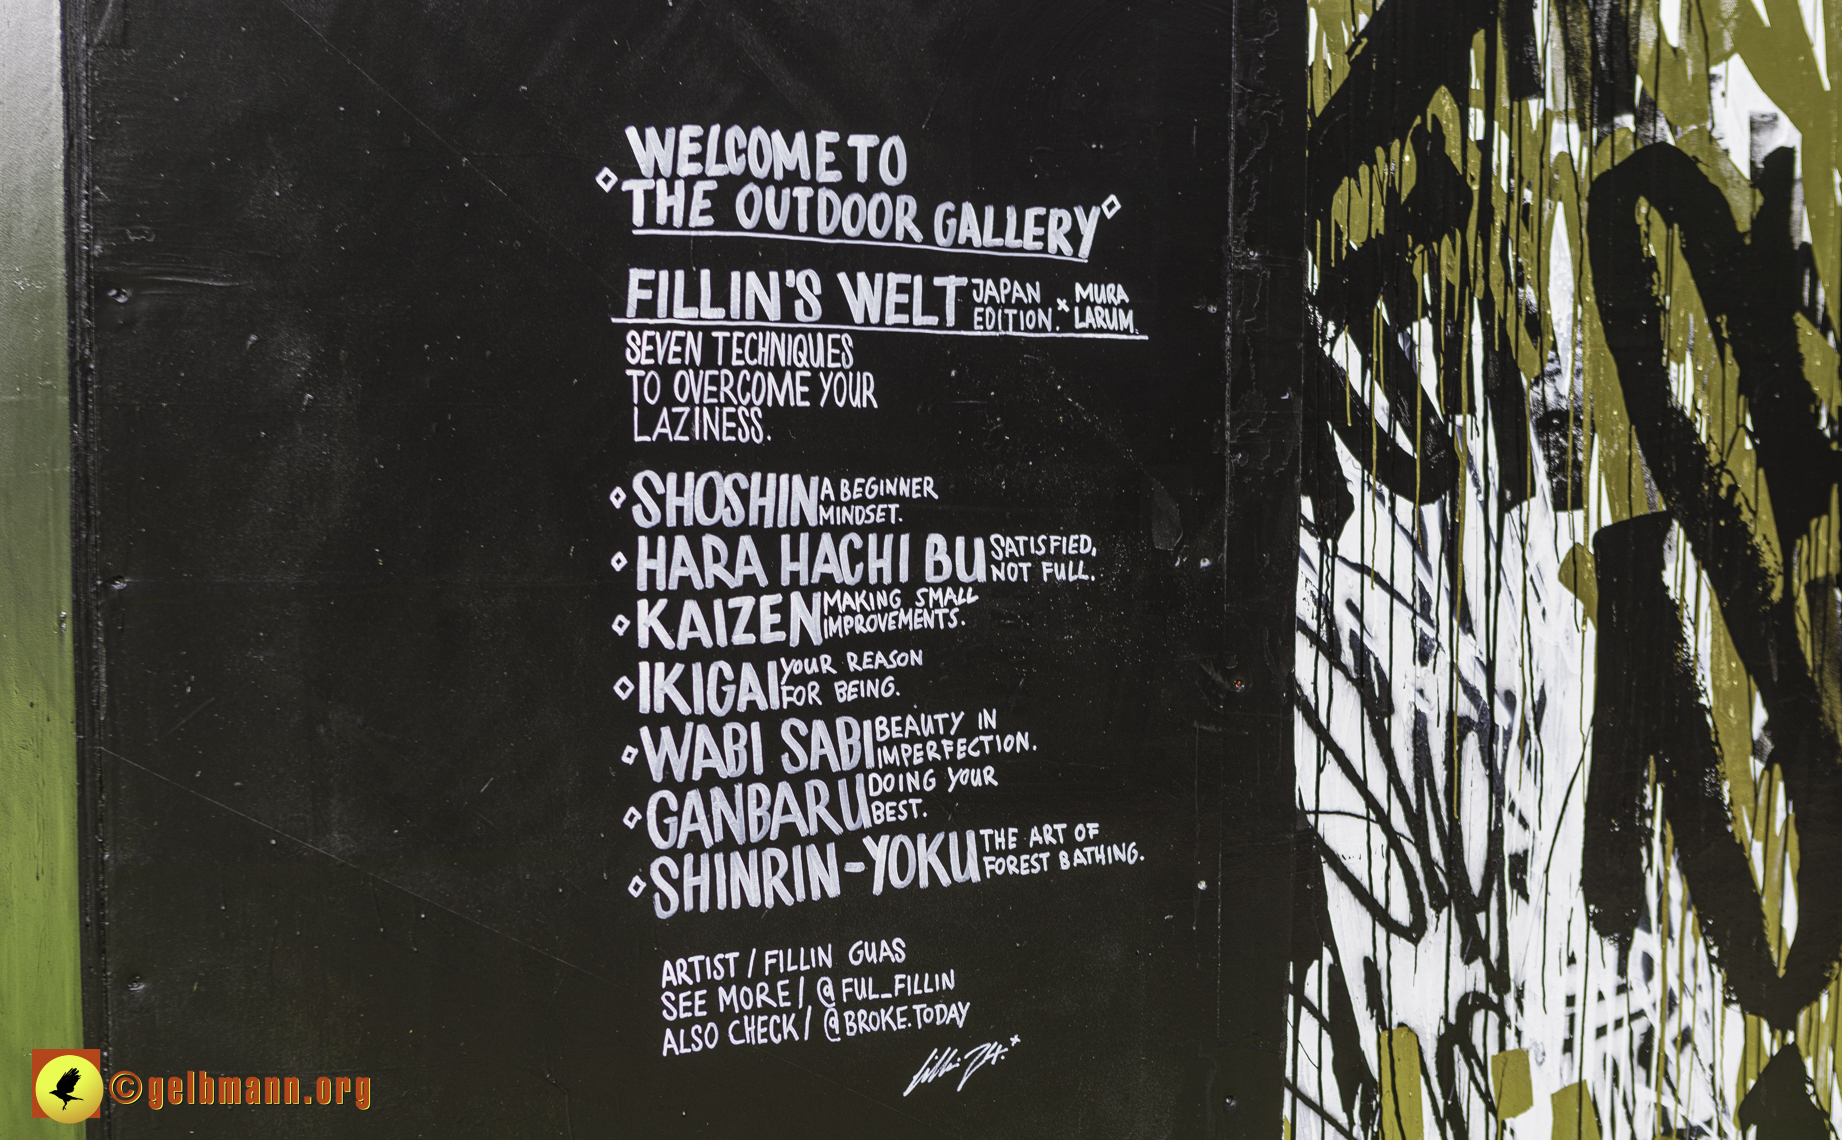 WELCOME TO
THE OUTDOOR GALLERY
FILLIN'S WELT JAPAN EDITION. x MURA LARUM.
SEVEN TECHNIQUES
TO OVERCOME YOUR
LAZINESS.
SHOSHIN A BEGINNER MINDSET.
HARA HACHI BU SATISFIED, NOT FULL.
KAIZEN MAKING SMALL IMPROVEMENTS.
IKIGAI YOUR REASON FOR BEING.
WABI SABI BEAUTY IN IMPERFECTION.
GANBARU DOING YOUR BEST.
SHINRIN-YOKU THE ART OF FOREST BATHING.
ARTIST / FILLIN GUAS
SEE MORE / @FUL_FILLIN
ALSO CHECK / @BROKE.TODAY
©gelbmann.org